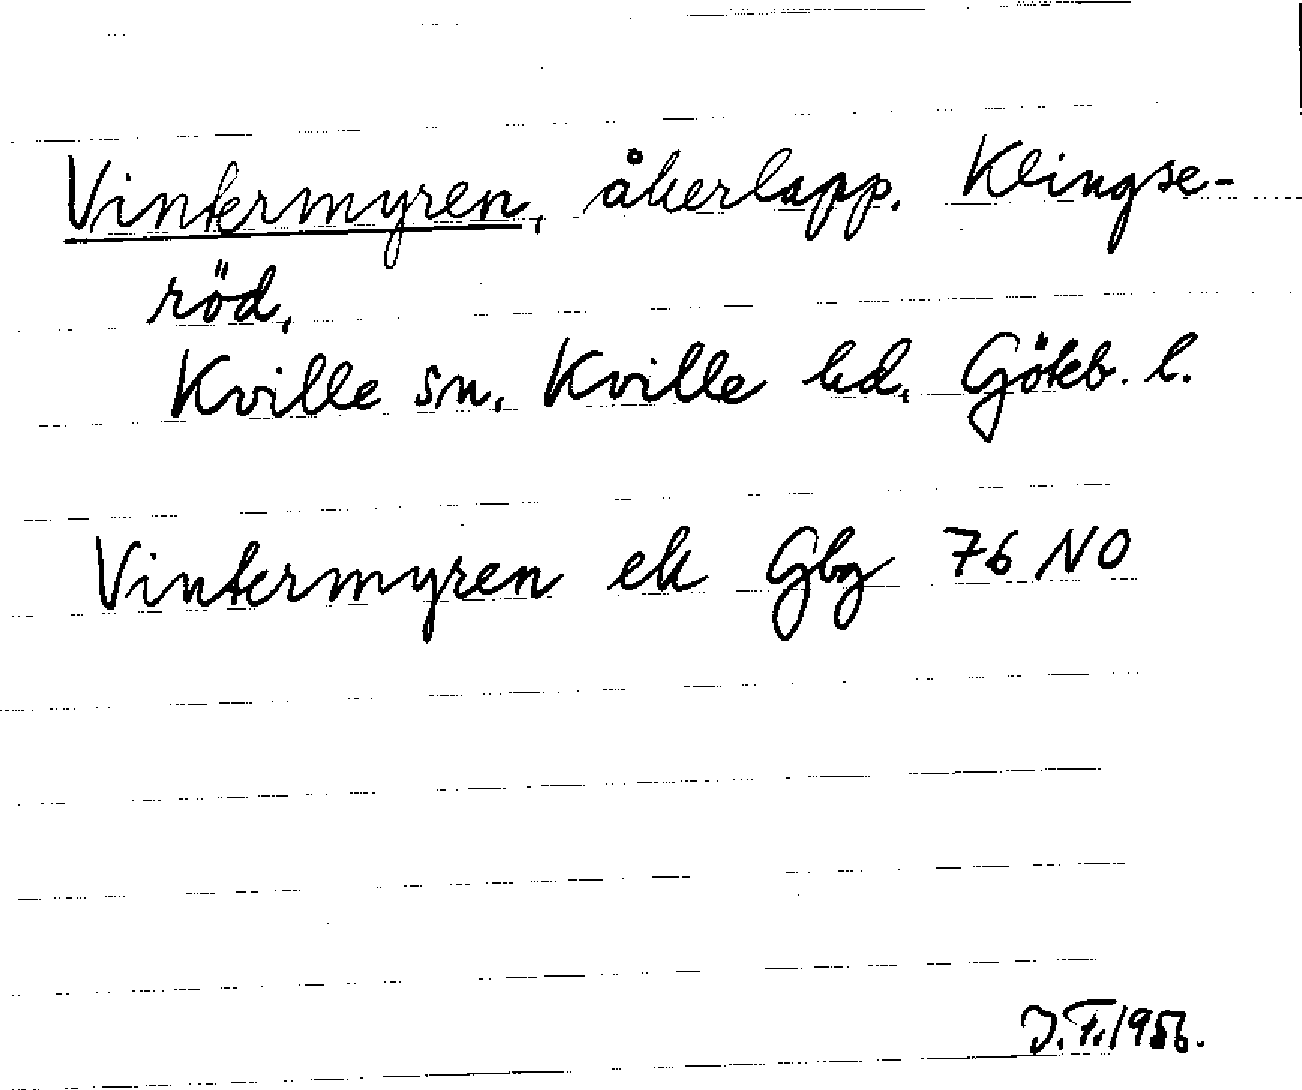 Vintermyren, åkerlapp. Klingse-
röd,
Kville sn, Kville hd, Göteb. l.
Vintermyren ek Gbg 76 NO
J.F. 1956.